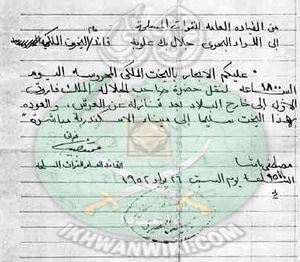 من القيادة العامة للقوات المسلحة
إلى اللواء البحري جلال بك علوبة قائد عام اليخوت الملكية
عليكم الإبحار باليخت الملكي المحروسة اليوم
الساعة ١٨٠٠ لنقل حضرة صاحب الجلالة الملك فاروق
الأول إلى خارج البلاد بعد تنازله عن العرش، والعودة
بهذا اليخت سليما إلى ميناء الإسكندرية مباشرة
فريق
القائد العام للقوات المسلحة
يوم السبت ٢٦ يوليو ١٩٥٢
IKHWANWIKI.COM